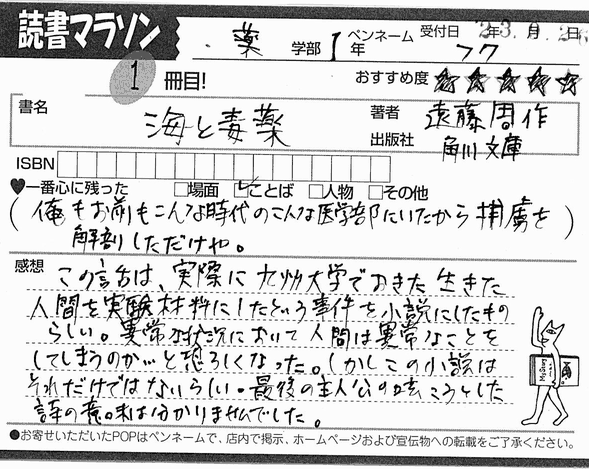 読書マラソン
薬 学部 1 年 ペンネーム フク 受付日 '23年 月 日
1 冊目!
おすすめ度 ☆☆☆☆☆
書名 海と毒薬
著者 遠藤周作
出版社 角川文庫
ISBN
♥一番心に残った □場面 ☑ことば □人物 □その他
(俺もお前もこんな時代のこんな医学部にいたから捕虜を)
解剖しただけや。
感想 この言台は、実際に九州大学でおきた生きた
人間を実験材料にしたという事件を小説にしたもの
らしい。異常な状況において人間は異常なことを
してしまうのか…と恐ろしくなった。しかしこの小説は
それだけではないらしい。最後の主人公の呟こうとした
詩の意味は分かりませんでした。
●お寄せいただいたPOPはペンネームで、店内で掲示、ホームページおよび宣伝物への転載をご了承ください。